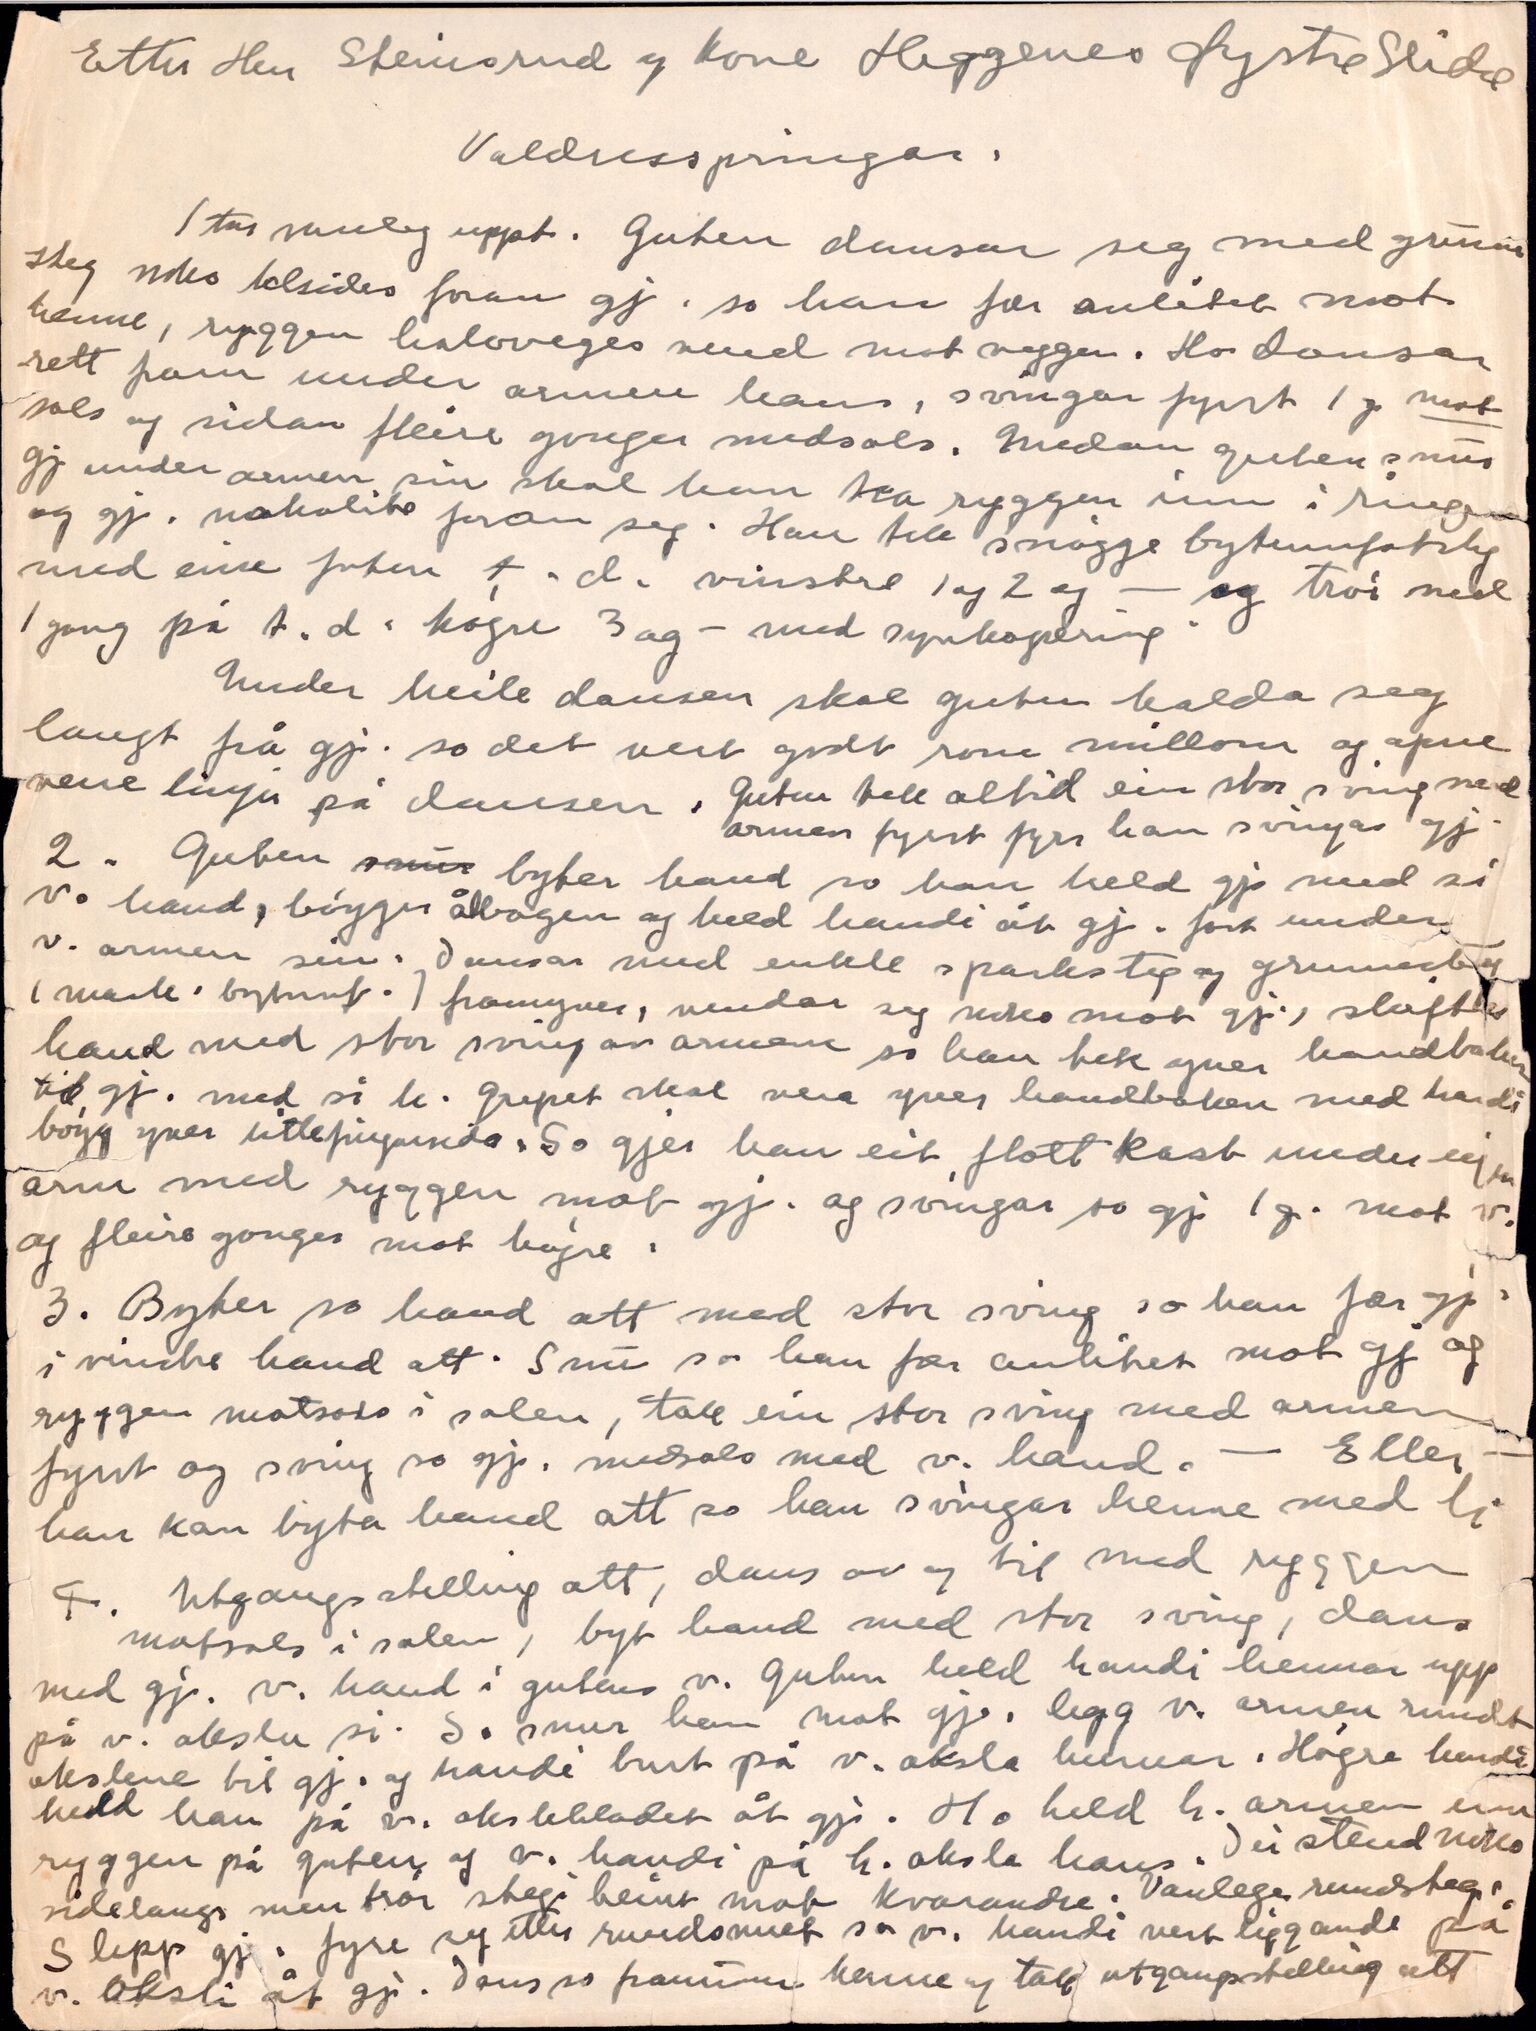 Etter Herr Steinsrud og kone Heggenes Øystre Slidre
Valdresspringar.
1 tur vanleg uppt. Guten dansar seg med grunn
steg noko tilsides foran gj. so han fær anlitet mot
henne, ryggen halvveges vend mot veggen. Ho dansar
rett fram under armen hans, svingar fyrst 1 g. mot
sols og sidan fleire gonger medsols. Medan guten snur
gj under armen sin skal han ha ryggen inn i ringen
og gj. nokolite foran seg. Han tek snøgge bytumfotsteg
med eine foten t.d. vinstre 1 og 2 og — og trør ned
1 gong på t.d. høgre 3 og — med synkopering.
Under heile dansen skal guten halda seg
langt frå gj. so det vert godt rom millom og opne
vene linjer på dansen. Guten tek altid ein stor sving med
armen fyrst fyrr han svingar gj.
2. Guten snur byter hand so han held gj med si
v. hand, bøyger ålbogen og held handi åt gj. fast under
v. armen sin. Dansar med enkle sparksteg og grunnsteg
(mark. bytumf.) framyver, vendar seg noko mot gj., skifter
hand med stor sving av armen so han tek yver handbaken
til gj. med si h. Grepet skal vera yver handbaken med handi
bøygd yver litlefingersida. So gjer han eit flott kast under eigen
arm med ryggen mot gj. og svingar so gj 1 g. mot v.
og fleire gonger mot høgre.
3. Byter so hand att med stor sving so han fær gj.
i vinstre hand att. Snu so han fær anlitet mot gj og
ryggen motsols i salen, tak ein stor sving med armen
fyrst og sving so gj. medsols med v. hand. — Eller —
han kan byta hand att so han svingar henne med h
4. Utgangsstelling att, dans av og til med ryggen
motsols i salen, byt hand med stor sving, dans
med gj. v. hand i gutens v. Guten held handi hennar upp
på v. oksla si. So snur han mot gj., legg v. armen rundt
okslene til gj. og handi burt på v. oksla hennar. Høgre handi
held han på v. okslebladet åt gj. Ho held h. armen um
ryggen på guten og v. handi på h. oksla hans. Dei stend noko
sidelangs men trør stegi beint mot kvarandre. Vanlege rundsteg.
Slepp gj. fyre seg etter rundsnuet so v. handi vert liggande på
v. oksli åt gj. Dans so framum henne og tak utgangsstelling att